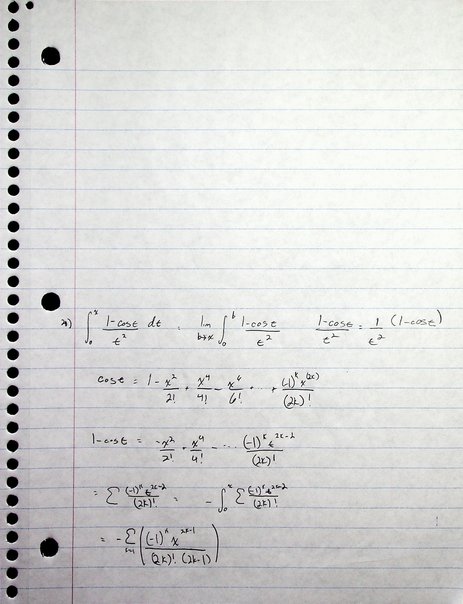 ∫_0^x (1-cost)/t^2 dt = lim_{b→x} ∫_0^b (1-cost)/t^2   (1-cost)/t^2 = 1/t^2 (1-cost)
cost = 1 - x^2/2! + x^4/4! - x^6/6! + ... + (-1)^k x^(2k)/(2k)!
1-cost = -x^2/2! + x^4/4! - ... (-1)^k t^{2k-2}/(2k)!
= Σ (-1)^k t^{2k-2}/(2k)! = -∫_0^x Σ (-1)^k t^{2k-2}/(2k)!
= -Σ_{k=1} ((-1)^k x^{2k-1}/((2k)! (2k-1)))